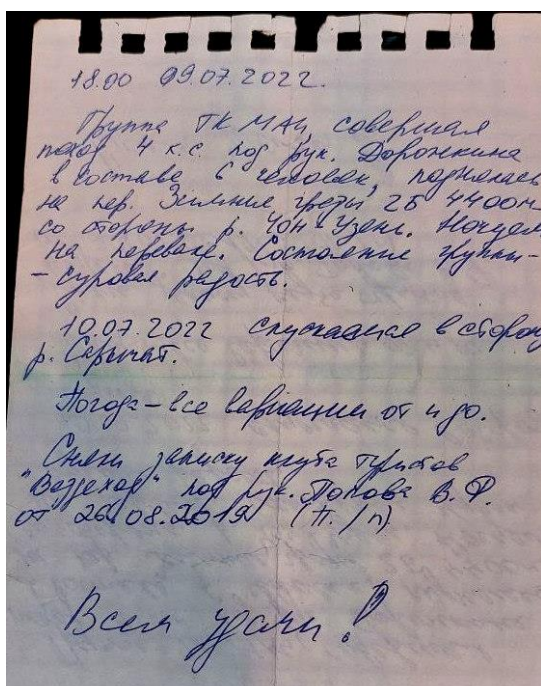 18.00 09.07.2022.
Группа ТК МАИ, совершая
поход 4 к.с. под рук. Дорожкина
в составе 6 человек, поднялась
на пер. Зимние грёзы 2Б 4400м
со стороны р. Чон-Узенг. Ночуем
на перевале. Состояние группы -
- суровая радость.
10.07.2022 спускаемся в сторону
р. Сарычат.
Погода - все вариации от и до.
Сняли записку клуба туристов
"Вездеход" под рук. Попова В.Ф.
от 26.08.2019 (П./п)
Всем удачи!